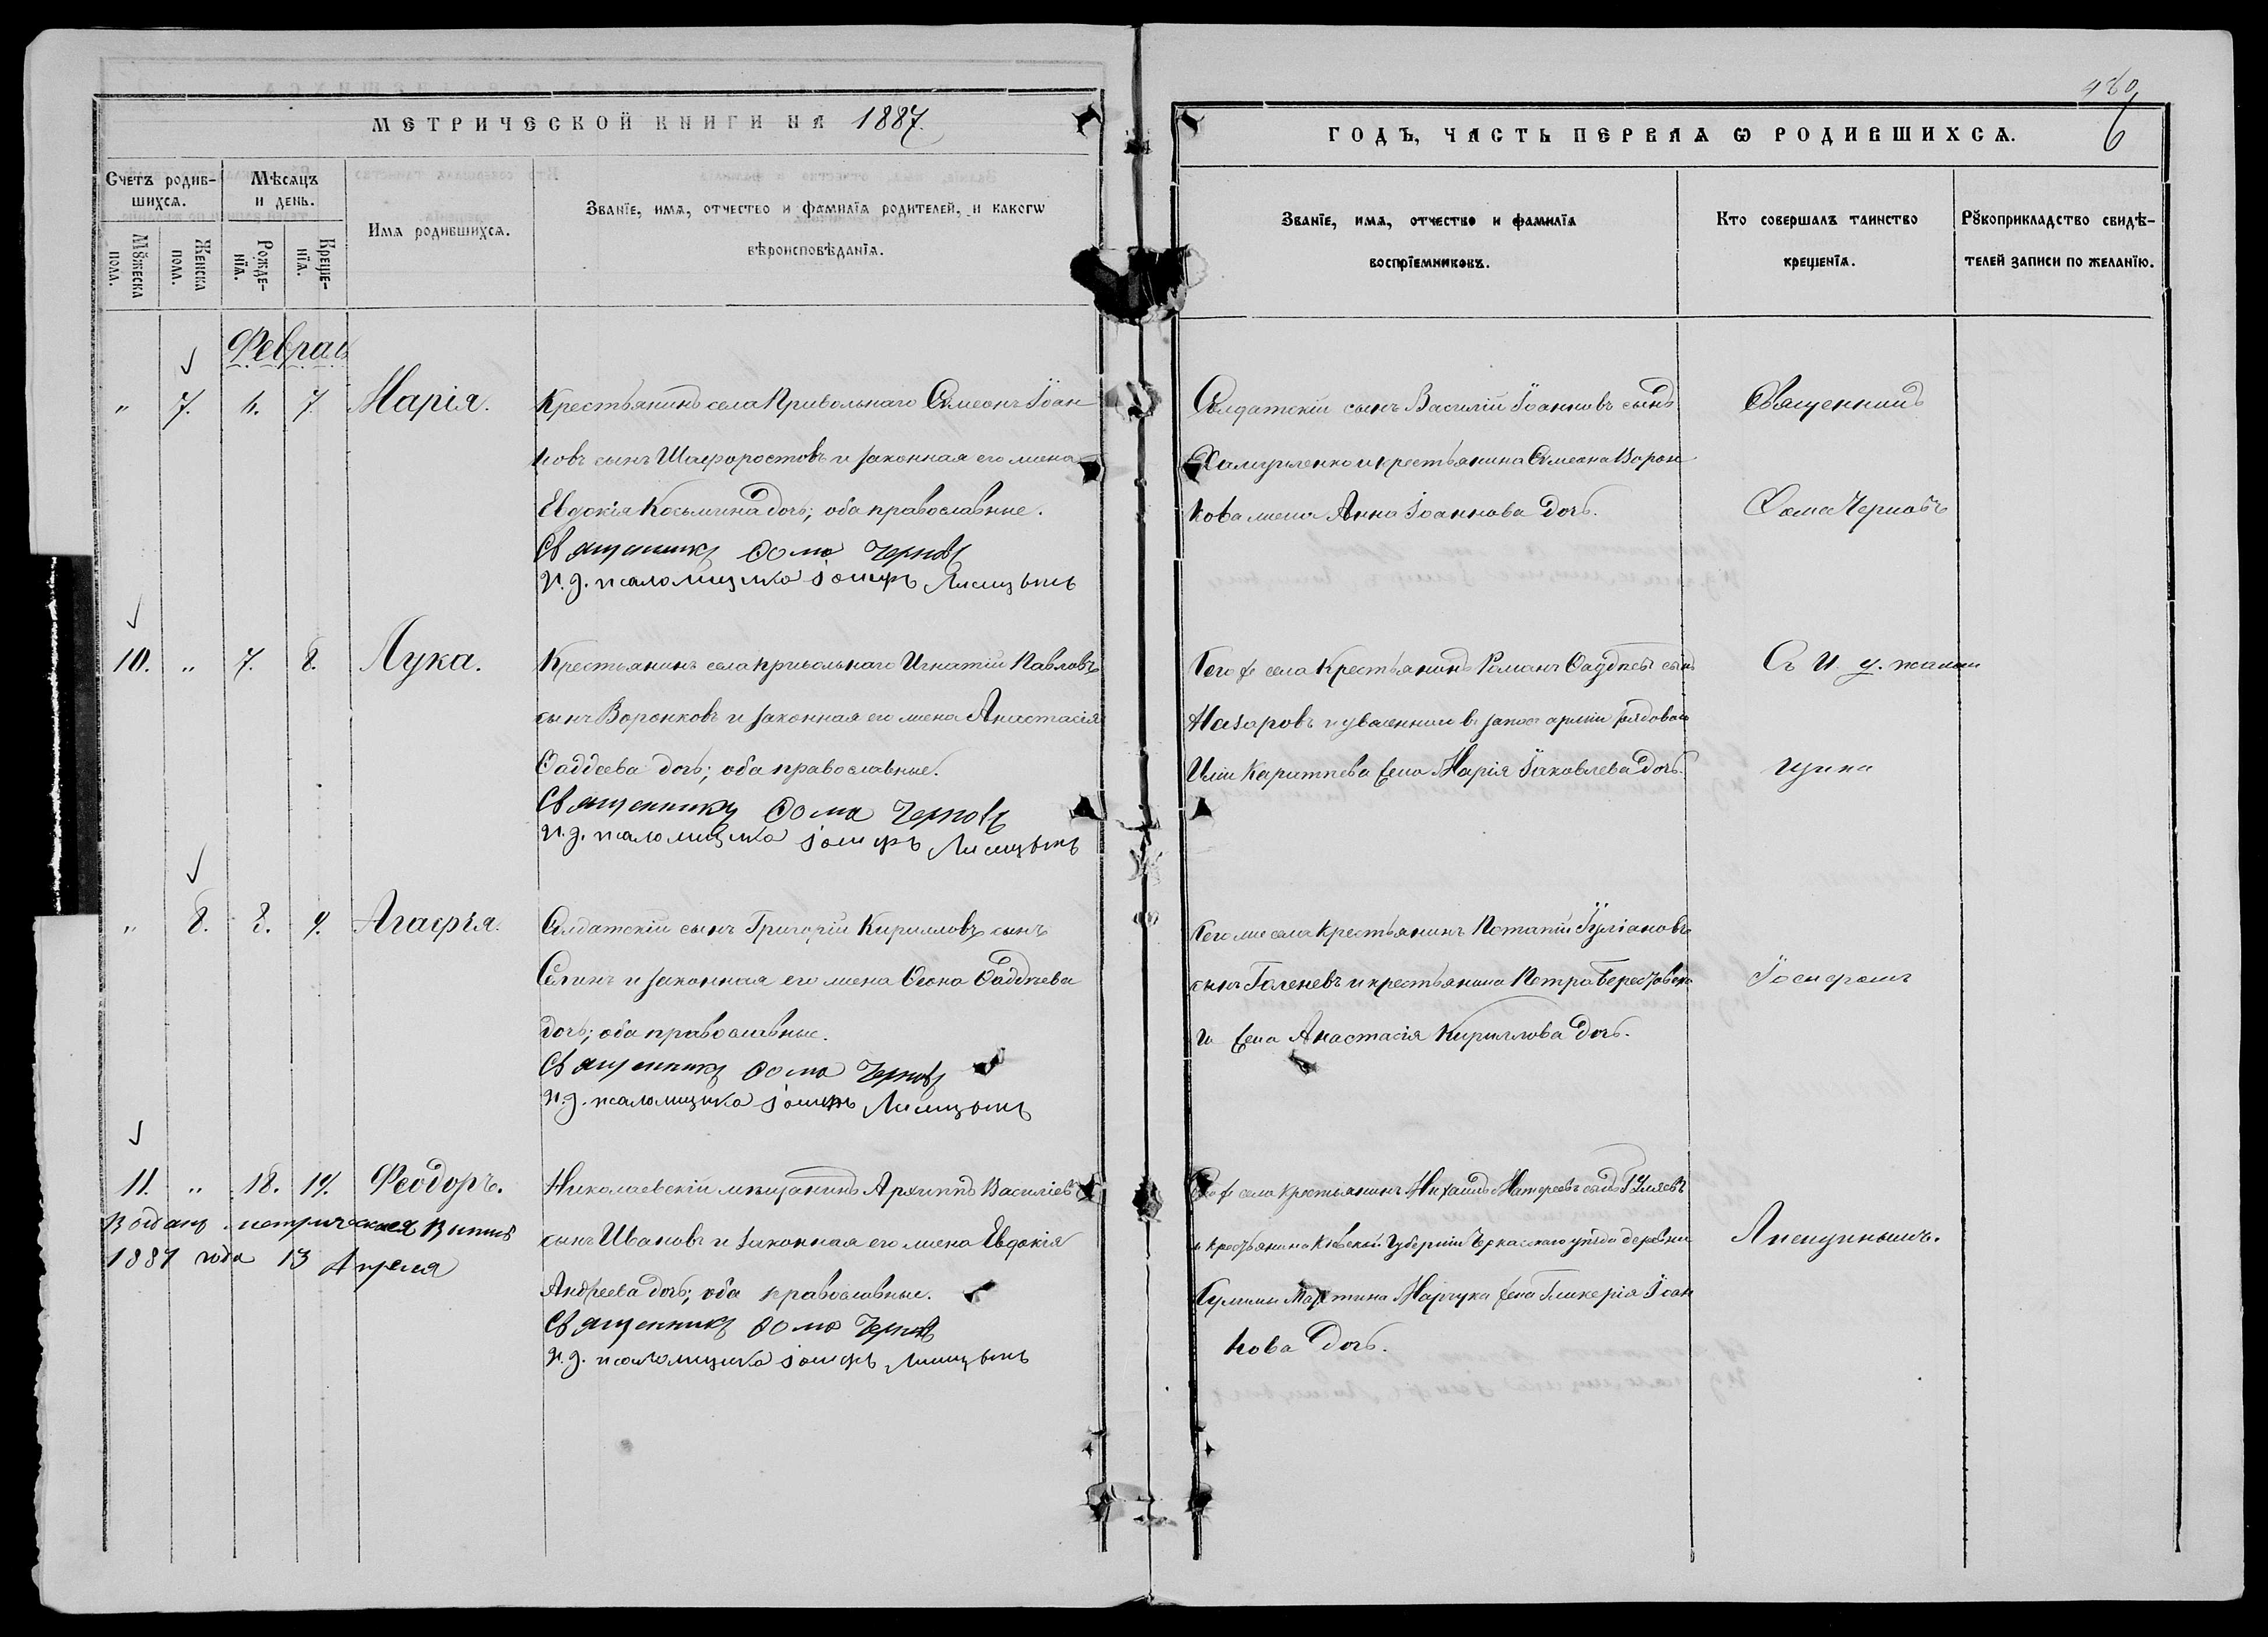 480
6
МЕТРИЧЕСКОЙ КНИГИ НА 1887.
ГОДЪ, ЧАСТЬ ПЕРВАЯ Ѡ РОДИВШИХСѦ.
Счетъ родив-
шихсѧ.
Мѣсѧцъ
и день.
Мꙋжеска
пола.
Женска
пола.
Рожде-
нїѧ.
Креще-
нїѧ.
Имѧ родившихсѧ.
Званїе, имѧ, отчество и фамилїѧ родителей, и какогѡ
вѣроисповѣданїѧ.
Званїе, имѧ, отчество и фамилїѧ
воспрїемниковъ.
Кто совершалъ таинство
крещенїѧ.
Рꙋкоприкладство свидѣ-
телей записи по желанїю.
Феврал
" 7. 6. 7. Марія.
Крестьянинъ села Привольнаго Сѵмеонъ Іоан
новъ сынъ Шафоростовъ и законная его жена
Евдокія Косьмина дочь; оба православные.
Священникъ Ѳома Черновъ
И. д. псаломщика Іосифъ Лисицынъ
Солдатскій сынъ Василій Іоанновъ сынъ
и крестьянина Сѵмеона Ворон
кова жена Анна Іоаннова дочь.
Священникъ
Ѳома Черновъ
10. " 7. 8. Лука.
Крестьянинъ села Привольнаго Игнатій Павловъ
сынъ Воронковъ и законная его жена Анастасія
Ѳаддеева дочь; оба православные.
Священникъ Ѳома Черновъ
И. д. псаломщика Іосифъ Лисицынъ
Того ж села Крестьянинъ Романъ сынъ
Назаровъ и уволеннаи в запас арміи рядоваго
Иліи жена Марія Іаковлева дочь.
Съ И. д. псалом
щика
" 8. 8. 9. Агафія.
Солдатскій сынъ Григорій Кирилловъ сынъ
и законная его жена Ѳаддѣева
дочь; оба православные.
Священникъ Ѳома Черновъ
И. д. псаломщика Іосифъ Лисицынъ
Того же села крестьянинъ Потапій Іуліановъ
сынъ Галеневъ и крестьянина Петра
го жена Анастасія Кириллова дочь.
Іосифомъ
11. " 18. 19. Ѳеодоръ.
Выдана метрическая выпись
1887 года 13 Апреля
Николаевскій мѣщанинъ Архиппъ Василіевъ
сынъ Ивановъ и законная его жена Евдокія
Андреева дочь; оба православные.
Священникъ Ѳома Черновъ
И. д. псаломщика Іосифъ Лисицынъ
Того ж села Крестьянинъ Михаилъ сынъ
и крестьянина Кіевской Губерніи Черкасскаго уѣзда деревни
Мартина Марчука жена Гликерія Іоан
нова дочь.
Лисицынымъ.